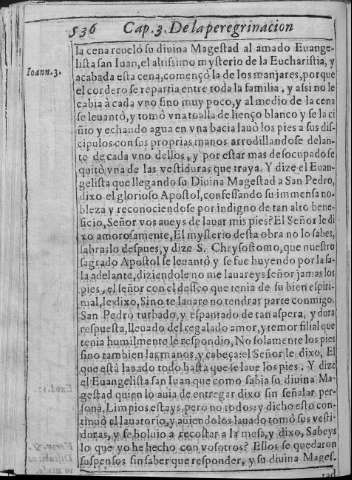 536 Cap. 3. De la peregrinacion
la cena reuelò su diuina Magestad al amado Euange-
Ioann. 3.
lista san Iuan, el altissimo mysterio de la Eucharistia, y
acabada esta cena, començò la de los manjares, porque
el cordero se repartia entre toda la familia, y assi no le
cabia à cada vno sino muy poco, y al medio de la cena
se leuantò, y tomò vna toalla de lienço blanco y se la ci
ñio y echando agua en vna bacia lauò los pies a sus dis-
cipulos con sus proprias manos arrodillandose delan-
te de cada vno dellos, y por estar mas desocupado se
quitò vna de las vestiduras que traya. Y dize el Euan-
gelista que llegando su Diuina Magestad a San Pedro,
dixo el glorioso Apostol, confessando su immensa no-
bleza y reconociendose por indigno de tan alto bene-
ficio, Señor vos aueys de lauar mis pies? El Señor le di
xo amorosamente, El mysterio desta obra no lo sabes,
sabraslo despues, y dize S. Chrysostomo, que nuestro
sagrado Apostol se leuantò y se fue huyendo por la sa-
la adelante, diziendole no me lauareys señor jamas los
pies, el señor con el desseo que tenia de su bien espiri-
tual, le dixo, Sino te lauare no tendras parte conmigo.
San Pedro turbado, y espantado de tan aspera, y dura
respuesta, lleuado del regalado amor, y temor filial que
tenia humilmente le respondio, No solamente los pies
sino tambien las manos, y cabeça: el Señor le dixo, El
que està lauado todo basta que se laue los pies. Y dize
el Euangelista san Iuan que como sabia su diuina Ma-
gestad quien lo auia de entregar dixo sin señalar per-
sona, Limpios estays, pero no todos: y dicho esto con-
tinuò el lauatorio, y auiendolos lauado tomò sus vesti-
duras, y se boluio a recostar a la mesa, y dixo, Sabeys
lo que yo he hecho con vosotros? Ellos se quedaron
suspensos sin saber que responder, y su diuina Mages-